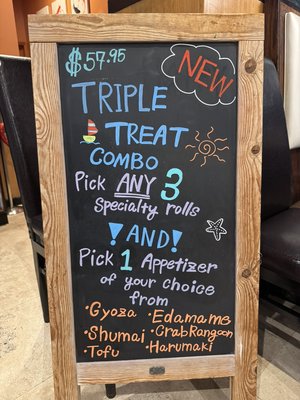 $57.95
NEW
TRIPLE
TREAT
COMBO
Pick ANY 3
Specialty rolls
! AND !
Pick 1 Appetizer
of your choice
from
• Gyoza • Edamame
• Shumai • Crab Rangoon
• Tofu • Harumaki